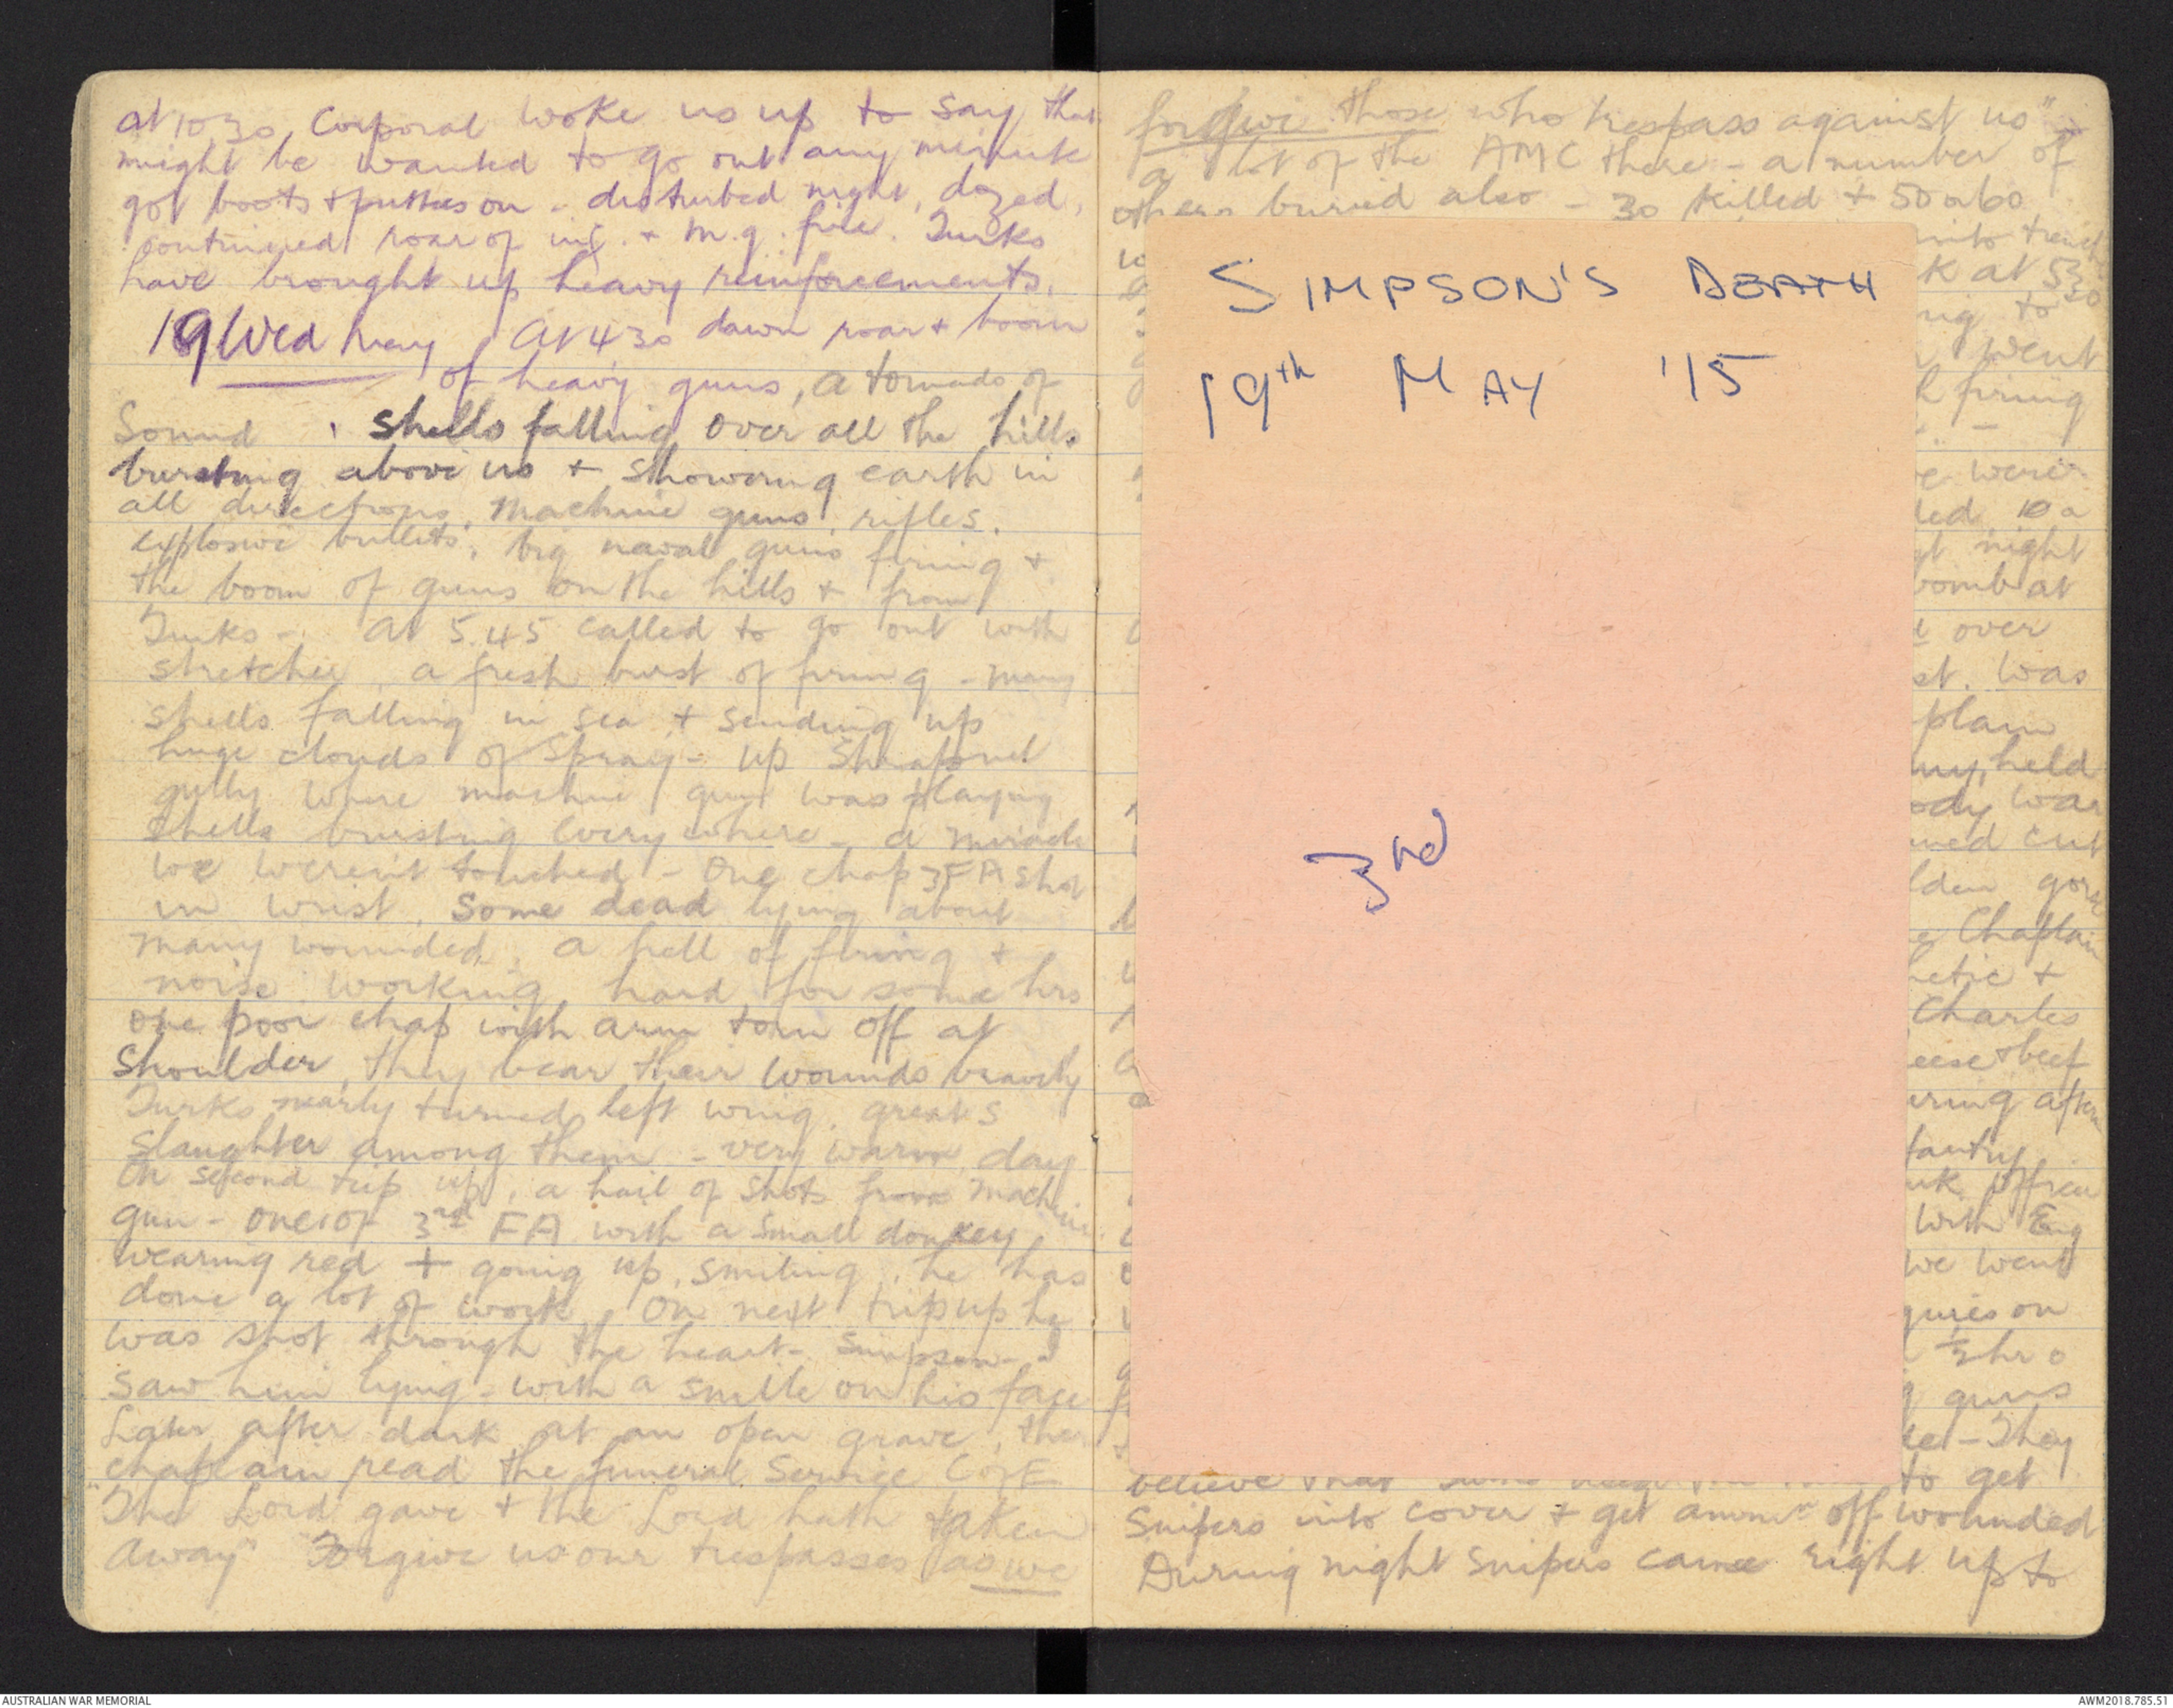 at 10 30, Corporal woke us up to say that
might be wanted to go out any minute
got boots + putties on - disturbed night, dozed,
continued roar of inf. + m.g. fire. Turks
have brought up heavy reinforcements.
19 Wed May At 4 30 dawn roar + boom
of heavy guns, a tornado of
Sound shells falling over all the hills
bursting above us + showering earth in
all directions, machine guns, rifles.
explosive bullets, big naval guns firing +
the boom of guns on the hills + from
Turks - At 5.45 called to go out with
stretcher, a fresh burst of firing - many
shells falling in sea + sending up
huge clouds of spray - up Shrapnel
gully where machine gun was playing
shells bursting everywhere - a miracle
we weren't touched - One chap 3 FA shot
in wrist, some dead lying about
many wounded, a hell of firing +
noise working hard for some hrs
one poor chap with arm torn off at
shoulder, they bear their wounds bravely
Turks nearly turned left wing, great
slaughter among them - very warm day
On second trip up, a hail of shots from machine
gun - one of 3rd FA with a small donkey
wearing red + going up, smiling, he has
done a lot of work. On next trip up he
was shot through the heart - Simpson -
saw him lying - with a smile on his face
Later after dark, at an open grave, the
chaplain read the funeral Service C of E
"The Lord gave + the Lord hath taken
Away" "Forgive us our trespasses as we
forgive those who trespass against us" -
a lot of the AMC there - a number of
others buried also - 30 killed + 50 or 60
into trench
SIMPSON'S DEATH
k at 5 30
ng to
19th MAY '15
went
firing
we were
ded 10 a
night
bomb at
over
st. was
plain
held
3rd
ody was
cut
lden gorse
Chaplain
hetic +
Charles
eese + beef
uring after
fantry
officer
with Eng
we went
quies on
½ hr
guns
- They
believe that to get
Snipers into cover + get ammn off wounded
During night snipers came right up to
AUSTRALIAN WAR MEMORIAL
AWM2018.785.51